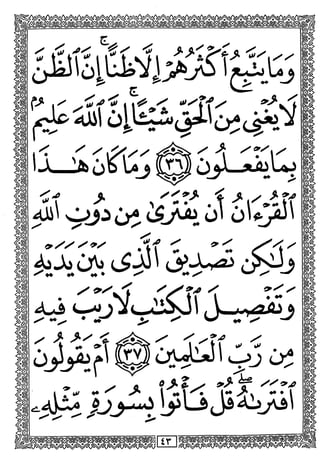 وَمَا يَتَّبِعُ أَكْثَرُهُمْ إِلَّا ظَنًّا ۚ إِنَّ ٱلظَّنَّ
لَا يُغْنِى مِنَ ٱلْحَقِّ شَيْـًٔا ۚ إِنَّ ٱللَّهَ عَلِيمٌۢ
بِمَا يَفْعَلُونَ ٣٦ وَمَا كَانَ هَـٰذَا
ٱلْقُرْءَانُ أَن يُفْتَرَىٰ مِن دُونِ ٱللَّهِ
وَلَـٰكِن تَصْدِيقَ ٱلَّذِى بَيْنَ يَدَيْهِ
وَتَفْصِيلَ ٱلْكِتَـٰبِ لَا رَيْبَ فِيهِ
مِن رَّبِّ ٱلْعَـٰلَمِينَ ٣٧ أَمْ يَقُولُونَ
ٱفْتَرَىٰهُ ۖ قُلْ فَأْتُوا۟ بِسُورَةٍ مِّثْلِهِۦ
٤٣